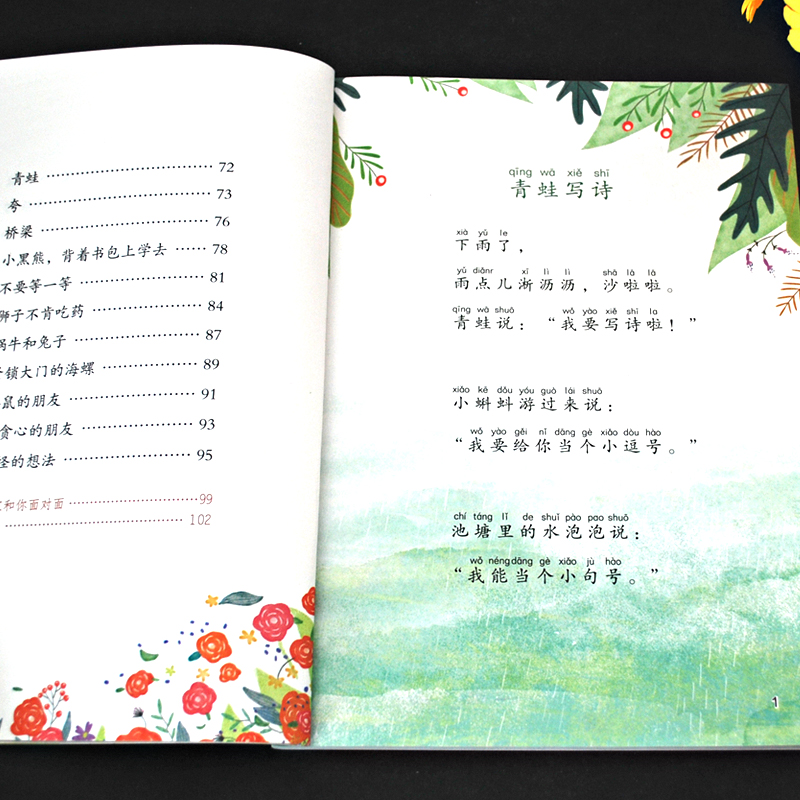 青蛙 ⋯⋯ 72
夸 ⋯⋯ 73
桥梁 ⋯⋯ 76
小黑熊，背着书包上学去 ⋯⋯ 78
不要等一等 ⋯⋯ 81
狮子不肯吃药 ⋯⋯ 84
蜗牛和兔子 ⋯⋯ 87
锁大门的海螺 ⋯⋯ 89
鼠的朋友 ⋯⋯ 91
贪心的朋友 ⋯⋯ 93
怪的想法 ⋯⋯ 95
和你面对面 ⋯⋯ 99
⋯⋯ 102
qīng wā xiě shī
青蛙写诗
xià yǔ le
下雨了，
yǔ diǎnr xī lì lì shā lā lā
雨点儿淅沥沥，沙啦啦。
qīng wā shuō wǒ yào xiě shī la
青蛙说：“我要写诗啦！”
xiǎo kē dǒu yóu guò lái shuō
小蝌蚪游过来说：
wǒ yào gěi nǐ dāng gè xiǎo dòu hào
“我要给你当个小逗号。”
chí táng lǐ de shuǐ pào pao shuō
池塘里的水泡泡说：
wǒ néng dāng gè xiǎo jù hào
“我能当个小句号。”
1